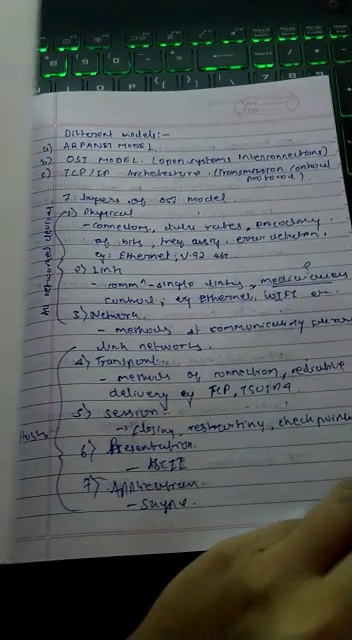 Different models:-
a) ARPANET MODEL.
b) OSI MODEL. (open systems Interconnections)
c) TCP/IP Archetecture. (Transmission control
protocol).
7 layers of OSI model
All networked devices
1) Physical
- connectors, data rates, encoding
of bits, error detection,
eg: Ethernet, V.92 etc.
2) Link
- comm^n single links, media access
control, eg ethernet, WIFI etc.
3) Network
- methods of communicating
link networks.
Hosts
4) Transport
- methods of connection, reliable
delivery eg TCP,
5) Session
- closing, restarting, check points
6) Presentation
- ASCII
7) Application
- Skype.